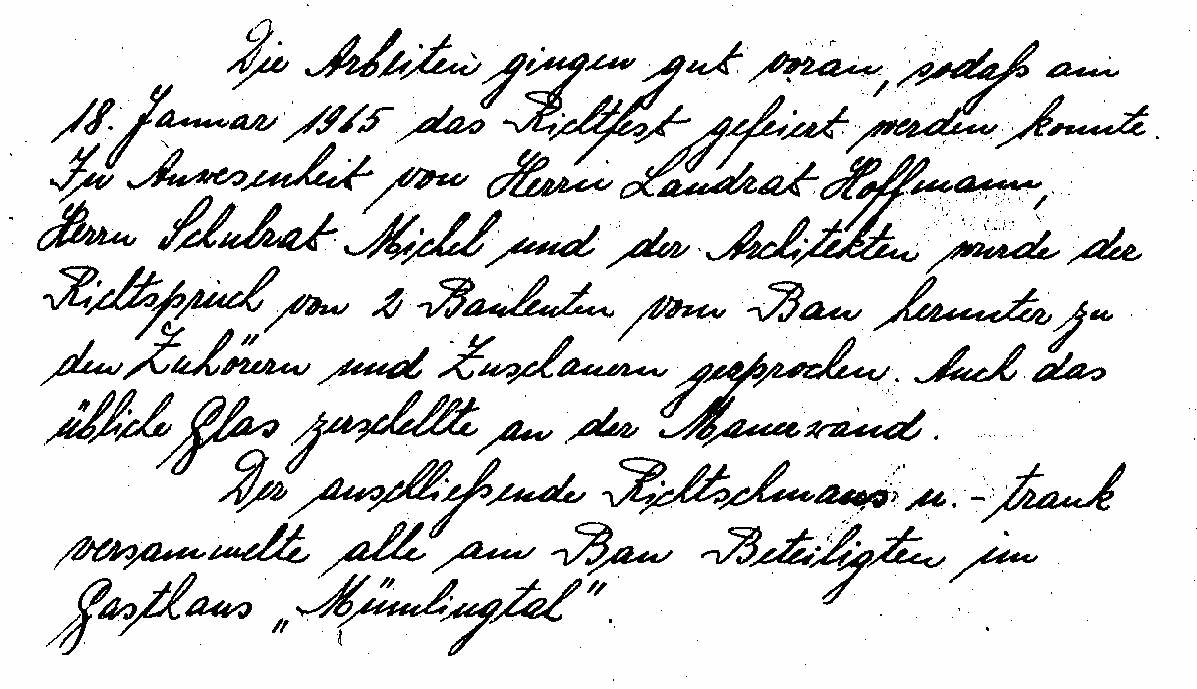 Die Arbeiten gingen gut voran, sodaß am
18. Januar 1965 das Richtfest gefeiert werden konnte.
In Anwesenheit von Herrn Landrat Hoffmann,
Herrn Schulrat Michel und der Architekten wurde der
Richtspruch von 2 Bauleuten vom Bau herunter zu
den Zuhörern und Zuschauern gesprochen. Auch das
übliche Glas zerschellte an der Mauerwand.
Der anschließende Richtschmaus u. - trank
versammelte alle am Bau Beteiligten im
Gasthaus „Mümlingtal".